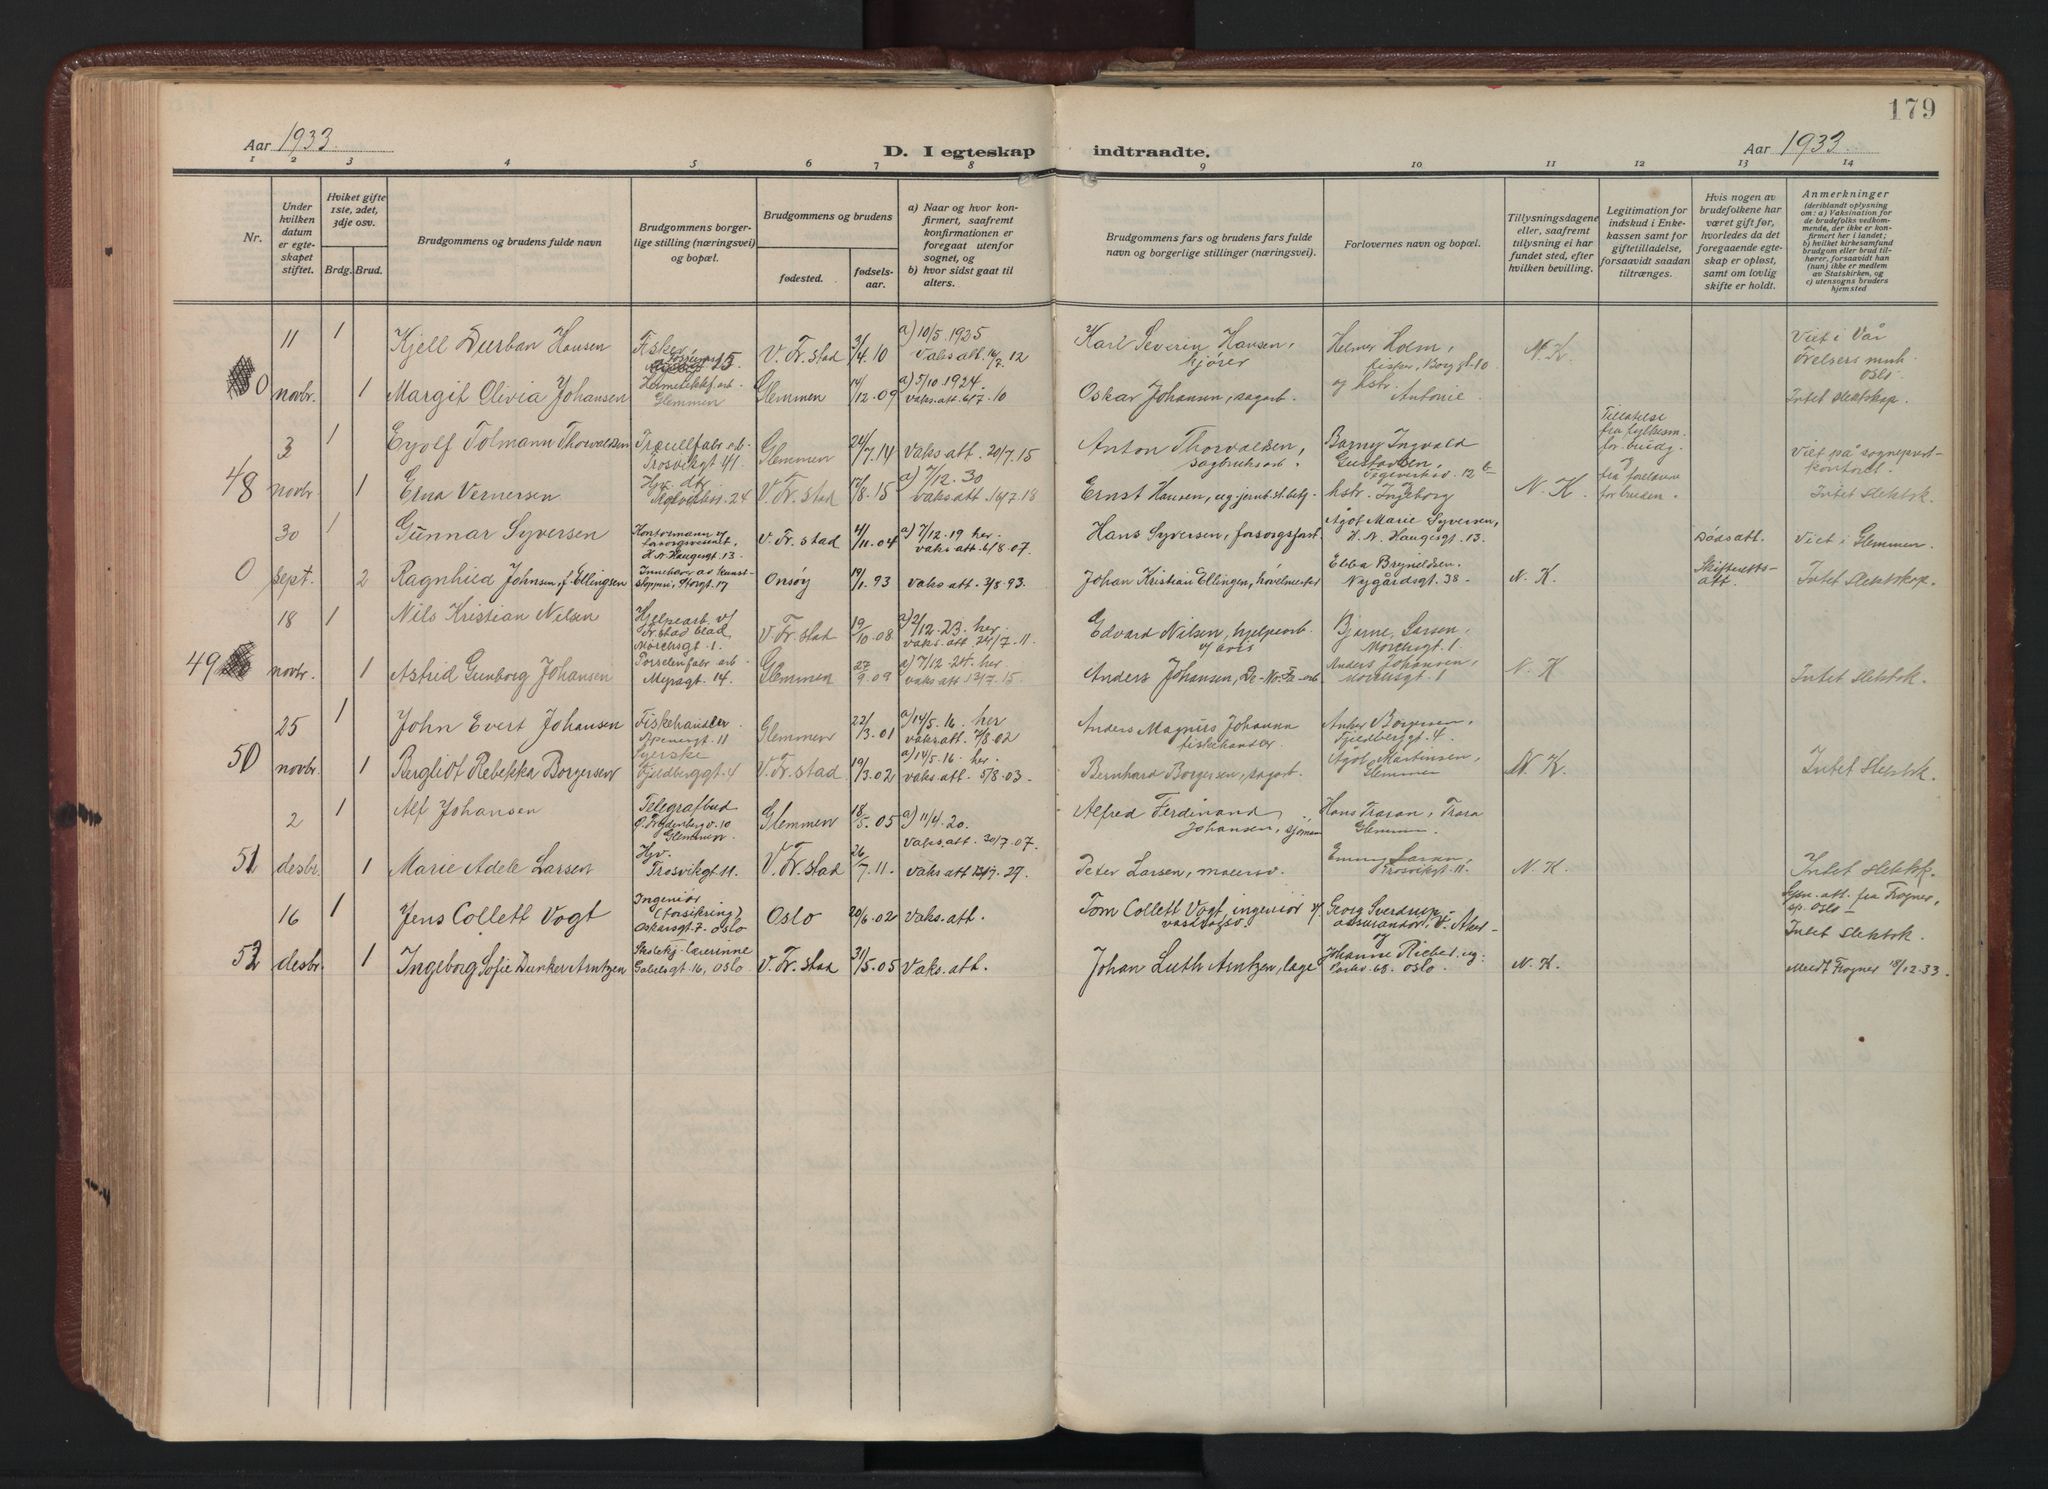 179
Aar 1933
D. I egteskap indtraadte.
Aar 1933
1 2 3 4 5 6 7 8 9 10 11 12 13 14
Nr.
Under hvilken datum er egteskapet stiftet.
Hviket gifte 1ste, 2det, 3dje osv.
Brdg. Brud.
Brudgommens og brudens fulde navn
Brudgommens borgerlige stilling (næringsvei) og bopæl.
Brudgommens og brudens
fødested.
fødselsaar.
a) Naar og hvor konfirmert, saafremt konfirmationen er foregaat utenfor sognet, og
b) hvor sidst gaat til alters.
Brudgommens fars og brudens fars fulde navn og borgerlige stillinger (næringsvei).
Forlovernes navn og bopæl.
Tillysningsdagene eller, saafremt tillysning ei har fundet sted, efter hvilken bevilling.
Legitimation for indskud i Enkekassen samt for giftetilladelse, forsaavidt saadan tiltrænges.
Hvis nogen av brudefolkene har været gift før, hvorledes da det foregaaende egteskap er opløst, samt om lovlig skifte er holdt.
Anmerkninger
(deriblandt oplysning om: a) Vaksination for de brudefolks vedkommende, der ikke er konfirmert her i landet; b) hvilket kirkesamfund brudgom eller brud tilhører, forsaavidt han (hun) ikke er medlem av Statskirken, og c) utensogns bruders hjemsted
11 1 Kjell Durban Hansen Fisker 15 V. Fr. stad 3/4. 10 a) 10/5 1925 Vaks att. 16/7. 12 Karl Severin Hansen, kjører Helmer Holm, fisker, Borggt. 10 N. K. Viet i Vår Frelsers menh. Oslo.
0 novbr. 1 Margit Olivia Johansen Hermetikkf. arb. Glemmen Glemmen 14/12. 09 a) 5/10. 1924. vaks. att. 6/7. 10 Oskar Johansen, sagarb. og hstr. Antonie Intet slektskap.
3 1 Eyolf Tolmann Thorvaldsen Træullfabr. arb. Trosvikgt 41 Glemmen 24/7. 14 Vaks att. 20/7. 15 Anton Thorvaldsen, sagbruksarb. Barney Ingvald Gustavsen, 12b Tillatelse fra fylkesm. for brudg. og Viet på sogneprest-kontoret.
48 novbr. 1 Erna Vernersen Hjv. dtr. 24 V. Fr. stad 17/8. 15 a) 7/12. 30 vaks att. 16/7. 18 Ernst Hansen, hstr. Ingeborg N. K. fra forelaeve for bruden. Intet slektsk.
30 1 Gunnar Syversen Kontormann v/ forsorgsvesenet. H. N. Haugesgt. 13 V. Fr. stad 4/11. 04 a) 7/12. 19 her vaks. att. 6/8. 07. Hans Syversen, forsorgsfort. Ågot Marie Syversen, H. N. Haugesgt. 13. Dødsatt. Viet i Glemmen.
0 sept. 2 Ragnhild Johnsen, f. Ellingsen Innehaver av kunststopperi, Storgt. 17 Onsøy 19/1. 93 vaks. att. 2/8. 93. Johan Kristian Ellingsen, høvelmester Ebba Brynildsen. Nygårdsgt. 38 - N. K. Skifteretts-att. Intet slektskap.
18 1 Nils Kristian Nilsen Hjelpearb. v/ Fr. stad blad Mørchsgt. 1 V. Fr. stad 19/10. 08 a) 2/12. 23. her. vaks. att. 24/7. 11. Edvard Nilsen, hjelpearb. v/ avis Bjarne Larsen, Mørchsgt. 1
49 novbr. 1 Astrid Gunborg Johansen Porselenfabr. arb. Myragt. 14. Glemmen 27/9. 09 a) 7/12. 24. her vaks. att. 13/7. 15. Anders Johansen, De-No-Fa-arb. Anders Johansen, Mørchsgt. 1 N. K Intet slektsk.
25 1 John Evert Johansen Fiskehandler 11 Glemmen 22/3. 01 a) 14/5. 16. her vaks. att. 7/8. 02 Anders Magnus Johansen fiskehandler. Anker Borgersen, Fjeldberggt. 4.
50 novbr. 1 Berglidt Rebekka Borgersen Syerske Fjeldberggt. 4 V. Fr. stad 19/3. 02 a) 14/5. 16. her. vaks. att. 5/8. 03. Bernhard Borgersen, sagarb. Ågot Martinsen, Glemmen N. K. Intet slektsk.
2 1 Alf Johansen Telegrafbud Ø. Frydenberg v. 10 Glemmen. Glemmen 18/5. 05 a) 11/4. 20. vaks. att. 30/7. 07. Alfred Ferdinand Johansen, sjømann Hans Traran, Trara Glemmen.
51 desbr. 1 Marie Adele Larsen Hjv. Trosvikgt. 11. V. Fr. stad 26/7. 11. vaks. att. 27 Peter Larsen, murerv. Emmy Larsen, Trosvikgt. 11. N. K. Intet slektsk.
16 1 Jens Collett Vogt Ingeniør (forsikring) Oskarsgt. 7. Oslo Oslo 20/6. 02 Vaks. att. Tom Collett Vogt, ingeniør v/ Georg Sverdrup, assurandør, V. Aker og att. fra Frogner, sp. Oslo - Intet slektsk.
52 desbr. 1 Ingeborg Sofie Dunker Arntzen Skolekj. lærerinne Gabelsgt. 16, Oslo V. Fr. stad 31/5. 05 Vaks. att. Johan Luth Arntzen, læge Johanne Rieber, 68. Oslo N. K. Meldt Frogner 18/12. 33.